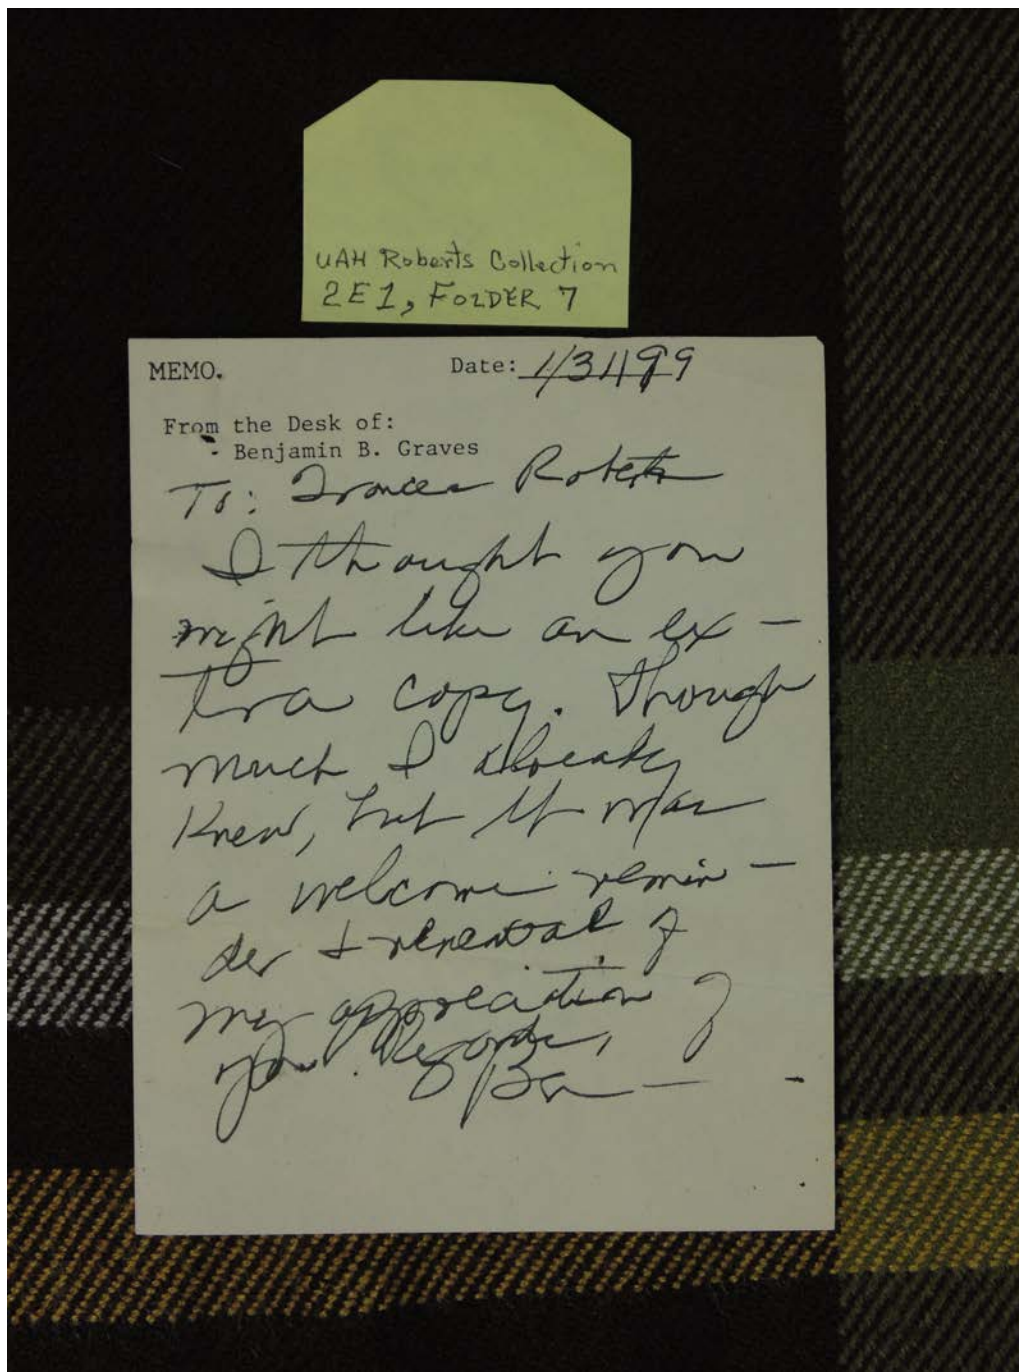 UAH Roberts Collection
2E1, FOLDER 7
MEMO.
Date: 1/31/99
From the Desk of:
Benjamin B. Graves
To: Frances Roberts
I thought you
might like an ex-
tra copy. Though
much I already
knew, but it was
a welcome remin-
der & renewal of
my appreciation of
you. Regards,
Ben